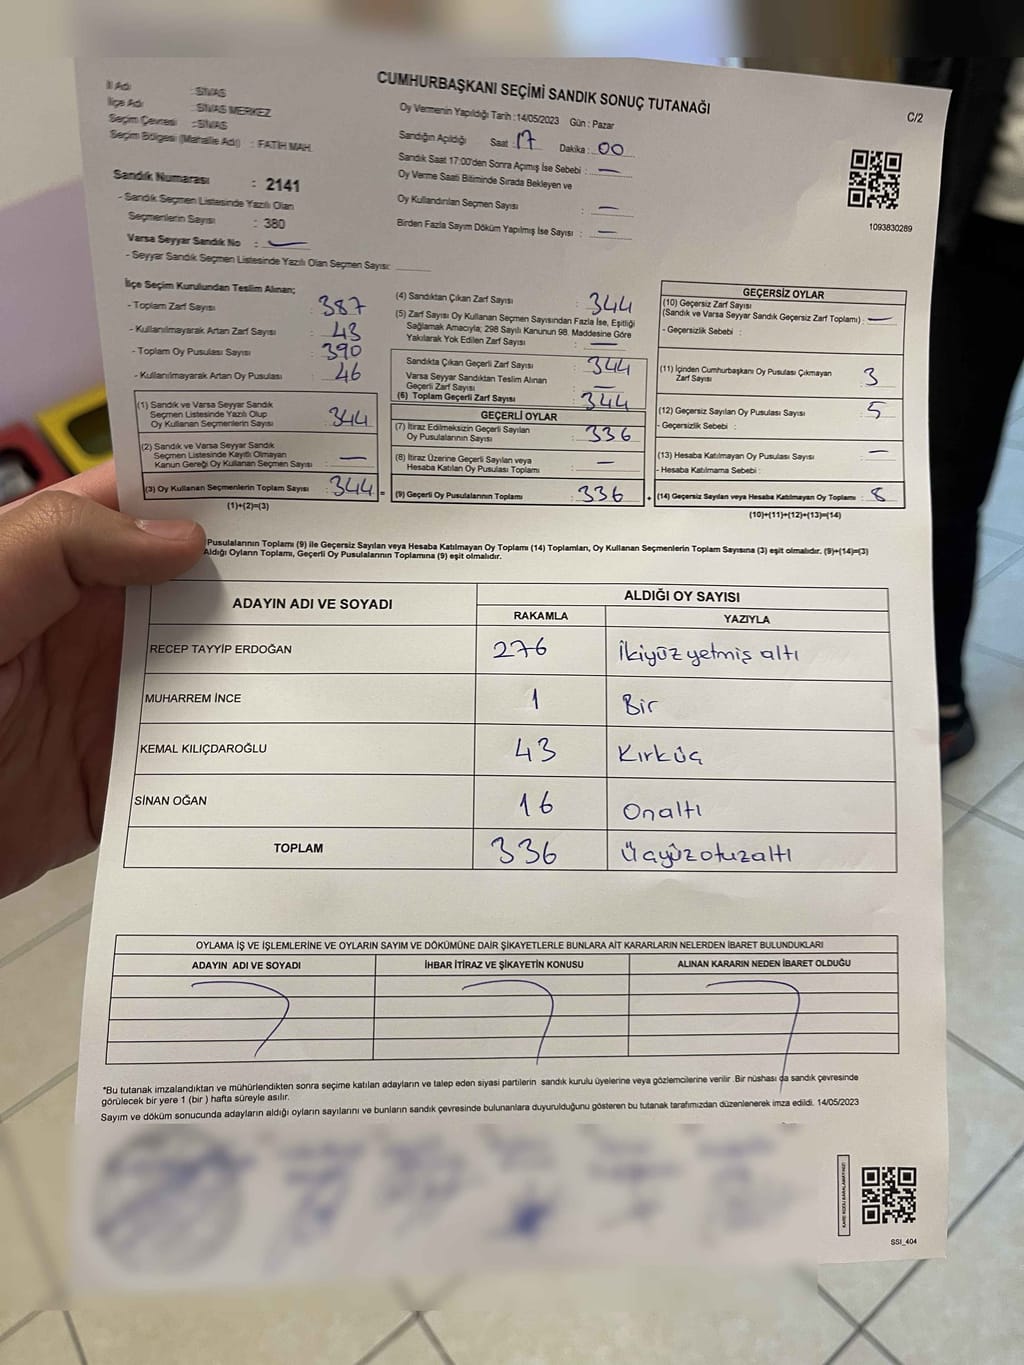 CUMHURBAŞKANI SEÇİMİ SANDIK SONUÇ TUTANAĞI
C/2
İl Adı : SİVAS
İlçe Adı : SİVAS MERKEZ
Seçim Çevresi : SİVAS
Seçim Bölgesi (Mahalle Adı) : FATİH MAH.
Sandık Numarası : 2141
- Sandık Seçmen Listesinde Yazılı Olan
Seçmenlerin Sayısı : 380
Varsa Seyyar Sandık No : —
- Seyyar Sandık Seçmen Listesinde Yazılı Olan Seçmen Sayısı:
Oy Vermenin Yapıldığı Tarih :14/05/2023 Gün : Pazar
Sandığın Açıldığı Saat : 17 Dakika : 00
Sandık Saat 17:00'den Sonra Açılmış İse Sebebi : —
Oy Verme Saati Bitiminde Sırada Bekleyen ve
Oy Kullandırılan Seçmen Sayısı : —
Birden Fazla Sayım Döküm Yapılmış İse Sayısı : —
1093830289
İlçe Seçim Kurulundan Teslim Alınan;
- Toplam Zarf Sayısı : 387
- Kullanılmayarak Artan Zarf Sayısı : 43
- Toplam Oy Pusulası Sayısı : 390
- Kullanılmayarak Artan Oy Pusulası : 46
(1) Sandık ve Varsa Seyyar Sandık
Seçmen Listesinde Yazılı Olup
Oy Kullanan Seçmenlerin Sayısı : 344
(2) Sandık ve Varsa Seyyar Sandık
Seçmen Listesinde Kayıtlı Olmayan
Kanun Gereği Oy Kullanan Seçmen Sayısı : —
(3) Oy Kullanan Seçmenlerin Toplam Sayısı : 344 =
(1)+(2)=(3)
(4) Sandıktan Çıkan Zarf Sayısı : 344
(5) Zarf Sayısı Oy Kullanan Seçmen Sayısından Fazla İse, Eşitliği
Sağlamak Amacıyla; 298 Sayılı Kanunun 98. Maddesine Göre
Yakılarak Yok Edilen Zarf Sayısı : —
Sandıkta Çıkan Geçerli Zarf Sayısı : 344
Varsa Seyyar Sandıktan Teslim Alınan
Geçerli Zarf Sayısı : —
(6) Toplam Geçerli Zarf Sayısı : 344
GEÇERLİ OYLAR
(7) İtiraz Edilmeksizin Geçerli Sayılan
Oy Pusulalarının Sayısı : 336
(8) İtiraz Üzerine Geçerli Sayılan veya
Hesaba Katılan Oy Pusulası Toplamı : —
(9) Geçerli Oy Pusulalarının Toplamı : 336 +
GEÇERSİZ OYLAR
(10) Geçersiz Zarf Sayısı
(Sandık ve Varsa Seyyar Sandık Geçersiz Zarf Toplamı) : —
- Geçersizlik Sebebi :
(11) İçinden Cumhurbaşkanı Oy Pusulası Çıkmayan
Zarf Sayısı : 3
(12) Geçersiz Sayılan Oy Pusulası Sayısı : 5
- Geçersizlik Sebebi :
(13) Hesaba Katılmayan Oy Pusulası Sayısı : —
- Hesaba Katılmama Sebebi :
(14) Geçersiz Sayılan veya Hesaba Katılmayan Oy Toplamı : 8
(10)+(11)+(12)+(13)=(14)
Pusulalarının Toplamı (9) ile Geçersiz Sayılan veya Hesaba Katılmayan Oy Toplamı (14) Toplamları, Oy Kullanan Seçmenlerin Toplam Sayısına (3) eşit olmalıdır. (9)+(14)=(3)
Aldığı Oyların Toplamı, Geçerli Oy Pusulalarının Toplamına (9) eşit olmalıdır.
ADAYIN ADI VE SOYADI
ALDIĞI OY SAYISI
RAKAMLA YAZIYLA
RECEP TAYYİP ERDOĞAN 276 İkiyüz yetmiş altı
MUHARREM İNCE 1 Bir
KEMAL KILIÇDAROĞLU 43 Kırküç
SİNAN OĞAN 16 Onaltı
TOPLAM 336 Üçyüzotuzaltı
OYLAMA İŞ VE İŞLEMLERİNE VE OYLARIN SAYIM VE DÖKÜMÜNE DAİR ŞİKAYETLERLE BUNLARA AİT KARARLARIN NELERDEN İBARET BULUNDUKLARI
ADAYIN ADI VE SOYADI İHBAR İTİRAZ VE ŞİKAYETİN KONUSU ALINAN KARARIN NEDEN İBARET OLDUĞU
*Bu tutanak imzalandıktan ve mühürlendikten sonra seçime katılan adayların ve talep eden siyasi partilerin sandık kurulu üyelerine veya gözlemcilerine verilir .Bir nüshası da sandık çevresinde
görülecek bir yere 1 (bir ) hafta süreyle asılır.
Sayım ve döküm sonucunda adayların aldığı oyların sayılarını ve bunların sandık çevresinde bulunanlara duyurulduğunu gösteren bu tutanak tarafımızdan düzenlenerek imza edildi. 14/05/2023
KARE KODU KARALAMAYINIZ!
SSI_404